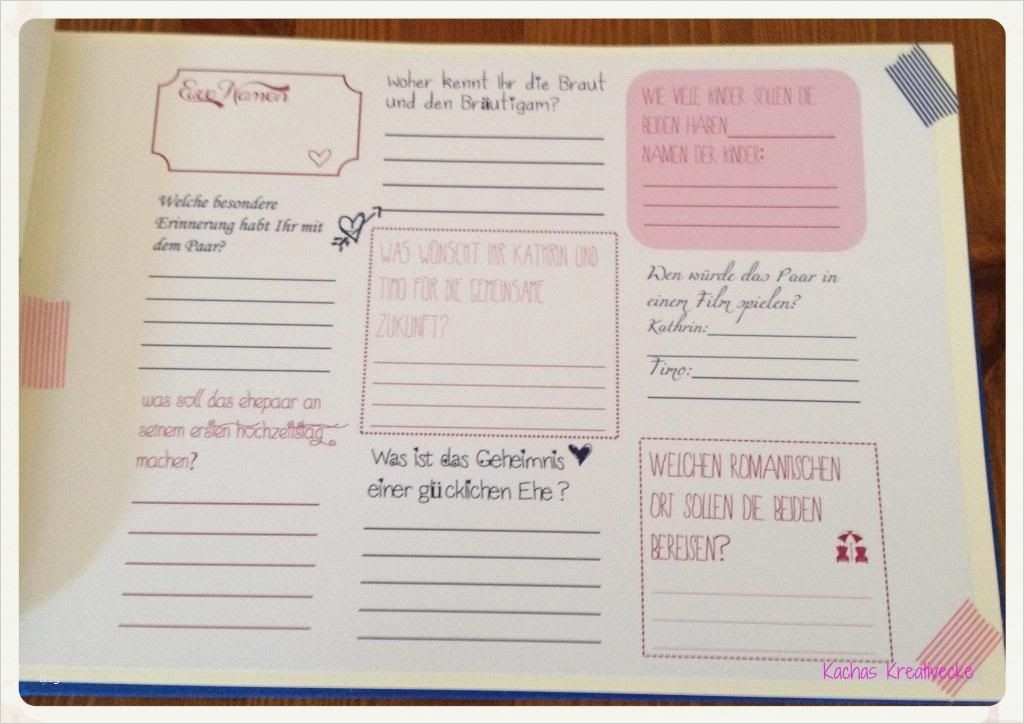 Eure Namen
Welche besondere
Erinnerung habt Ihr mit
dem Paar?
was soll das ehepaar an
seinem ersten hochzeitstag
machen?
Woher kennt Ihr die Braut
und den Bräutigam?
WAS WÜNSCHT IHR KATHRIN UND
TIMO FÜR DIE GEMEINSAME
ZUKUNFT?
Was ist das Geheimnis
einer glücklichen Ehe?
WIE VIELE KINDER SOLLEN DIE
BEIDEN HABEN
NAMEN DER KINDER:
Wen würde das Paar in
einem Film spielen?
Kathrin:
Timo:
WELCHEN ROMANTISCHEN
ORT SOLLEN DIE BEIDEN
BEREISEN?
Kachas Kreativecke